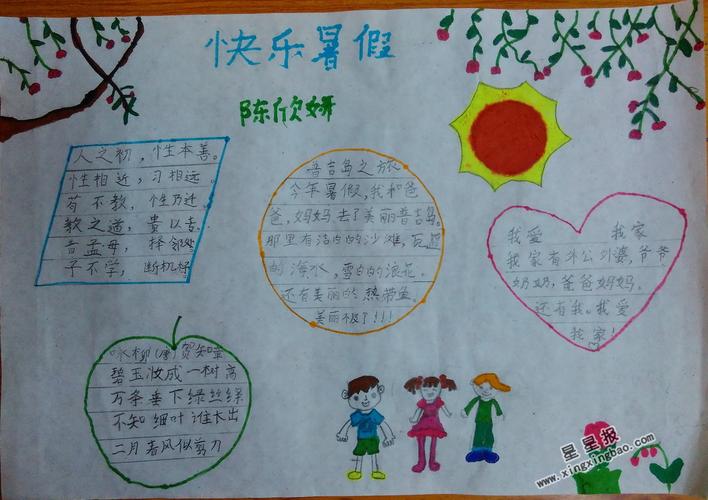 快乐暑假
陈欣妍
人之初，性本善。
性相近，习相远。
苟不教，性乃迁
教之道，贵以专.
昔孟母，择邻处
子不学，断机杼
普吉岛之旅
今年暑假，我和爸
爸，妈妈去了美丽普吉岛。
那里有洁白的沙滩，瓦蓝
的海水，雪白的浪花。
还有美丽的热带鱼。
美丽极了!!!
我爱 我家
我家有外公外婆，爷爷
奶奶，爸爸妈妈。
还有我。我爱
我家!
咏柳(唐)贺知章
碧玉妆成一树高
万条垂下绿丝绦
不知细叶谁才出
二月春风似剪刀
星星报
www.xingxingbao.com